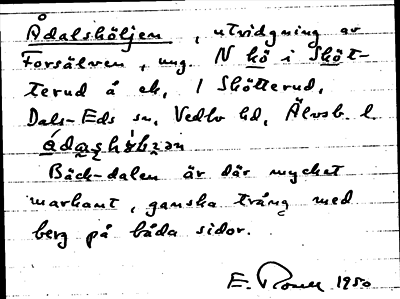 Ådalshöljen, utvidgning av
Forsälven, ung. N hö i Sköt-
terud å ek. 1 Skötterud,
Dals-Eds sn, Vedbo hd, Älvsb. l.
Bäck-dalen är där mycket
markant, ganska trång med
berg på båda sidor.
E. 1950